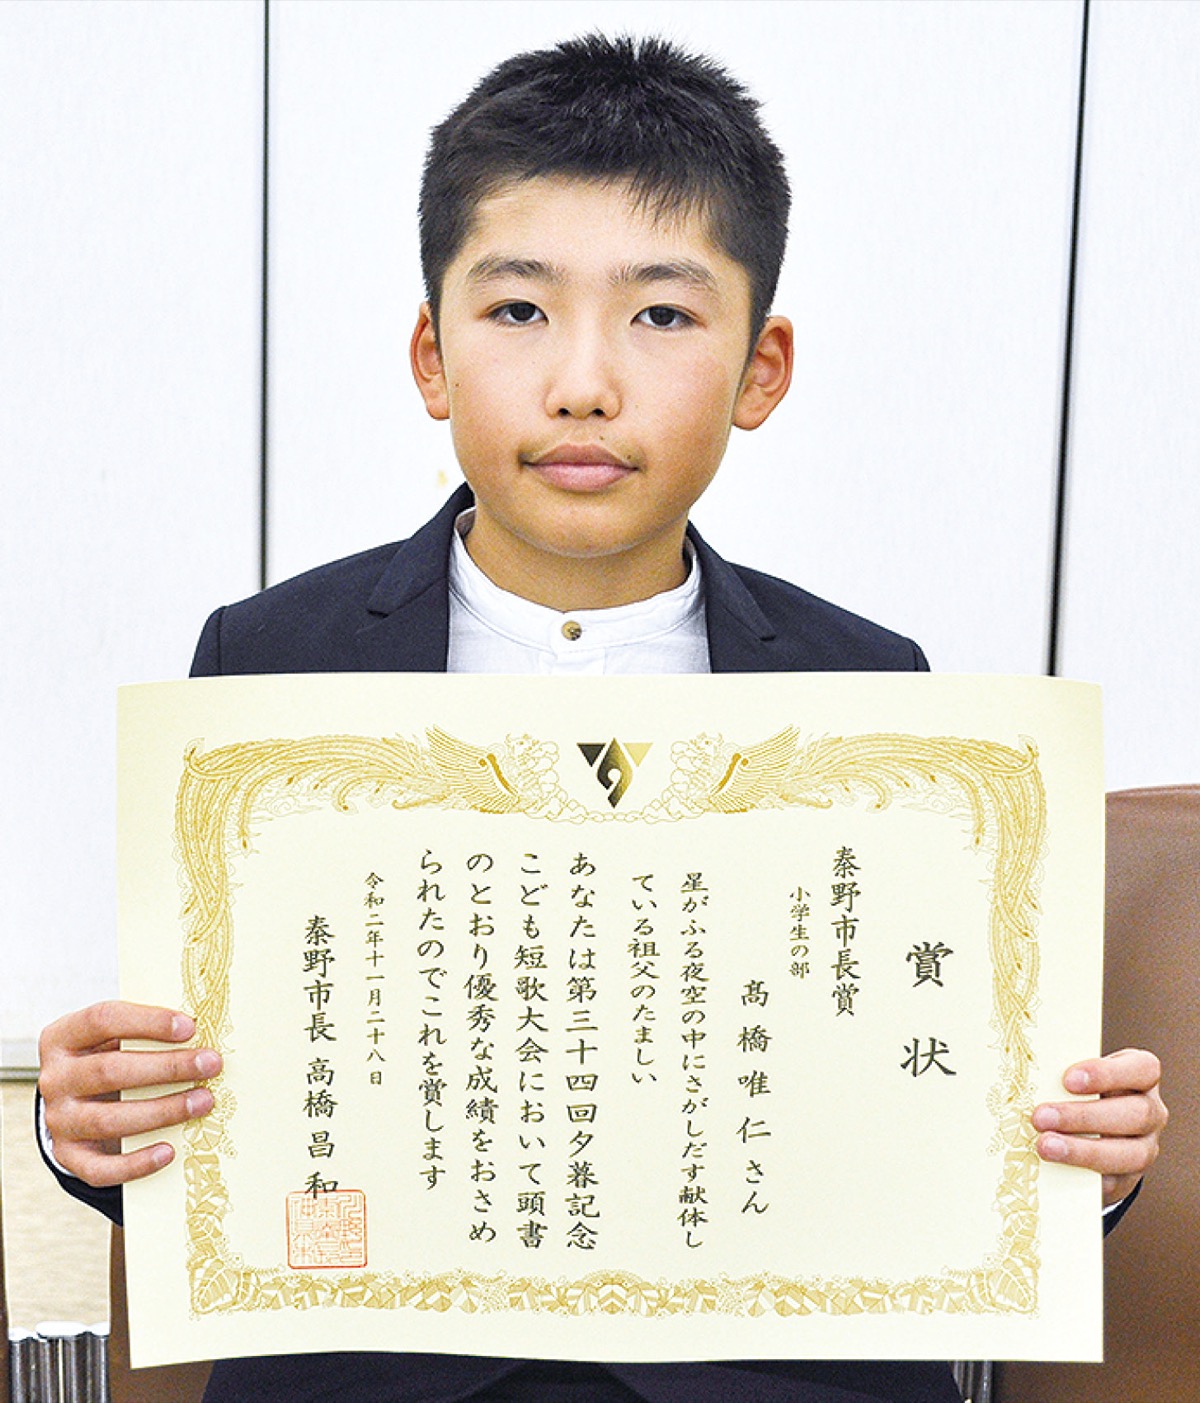 賞状
秦野市長賞
小学生の部
髙橋唯仁さん
星がふる夜空の中にさがしだす献体し
ている祖父のたましい
あなたは第三十四回夕暮記念
こども短歌大会において頭書
のとおり優秀な成績をおさめ
られたのでこれを賞します
令和二年十一月二十八日
秦野市長高橋昌和